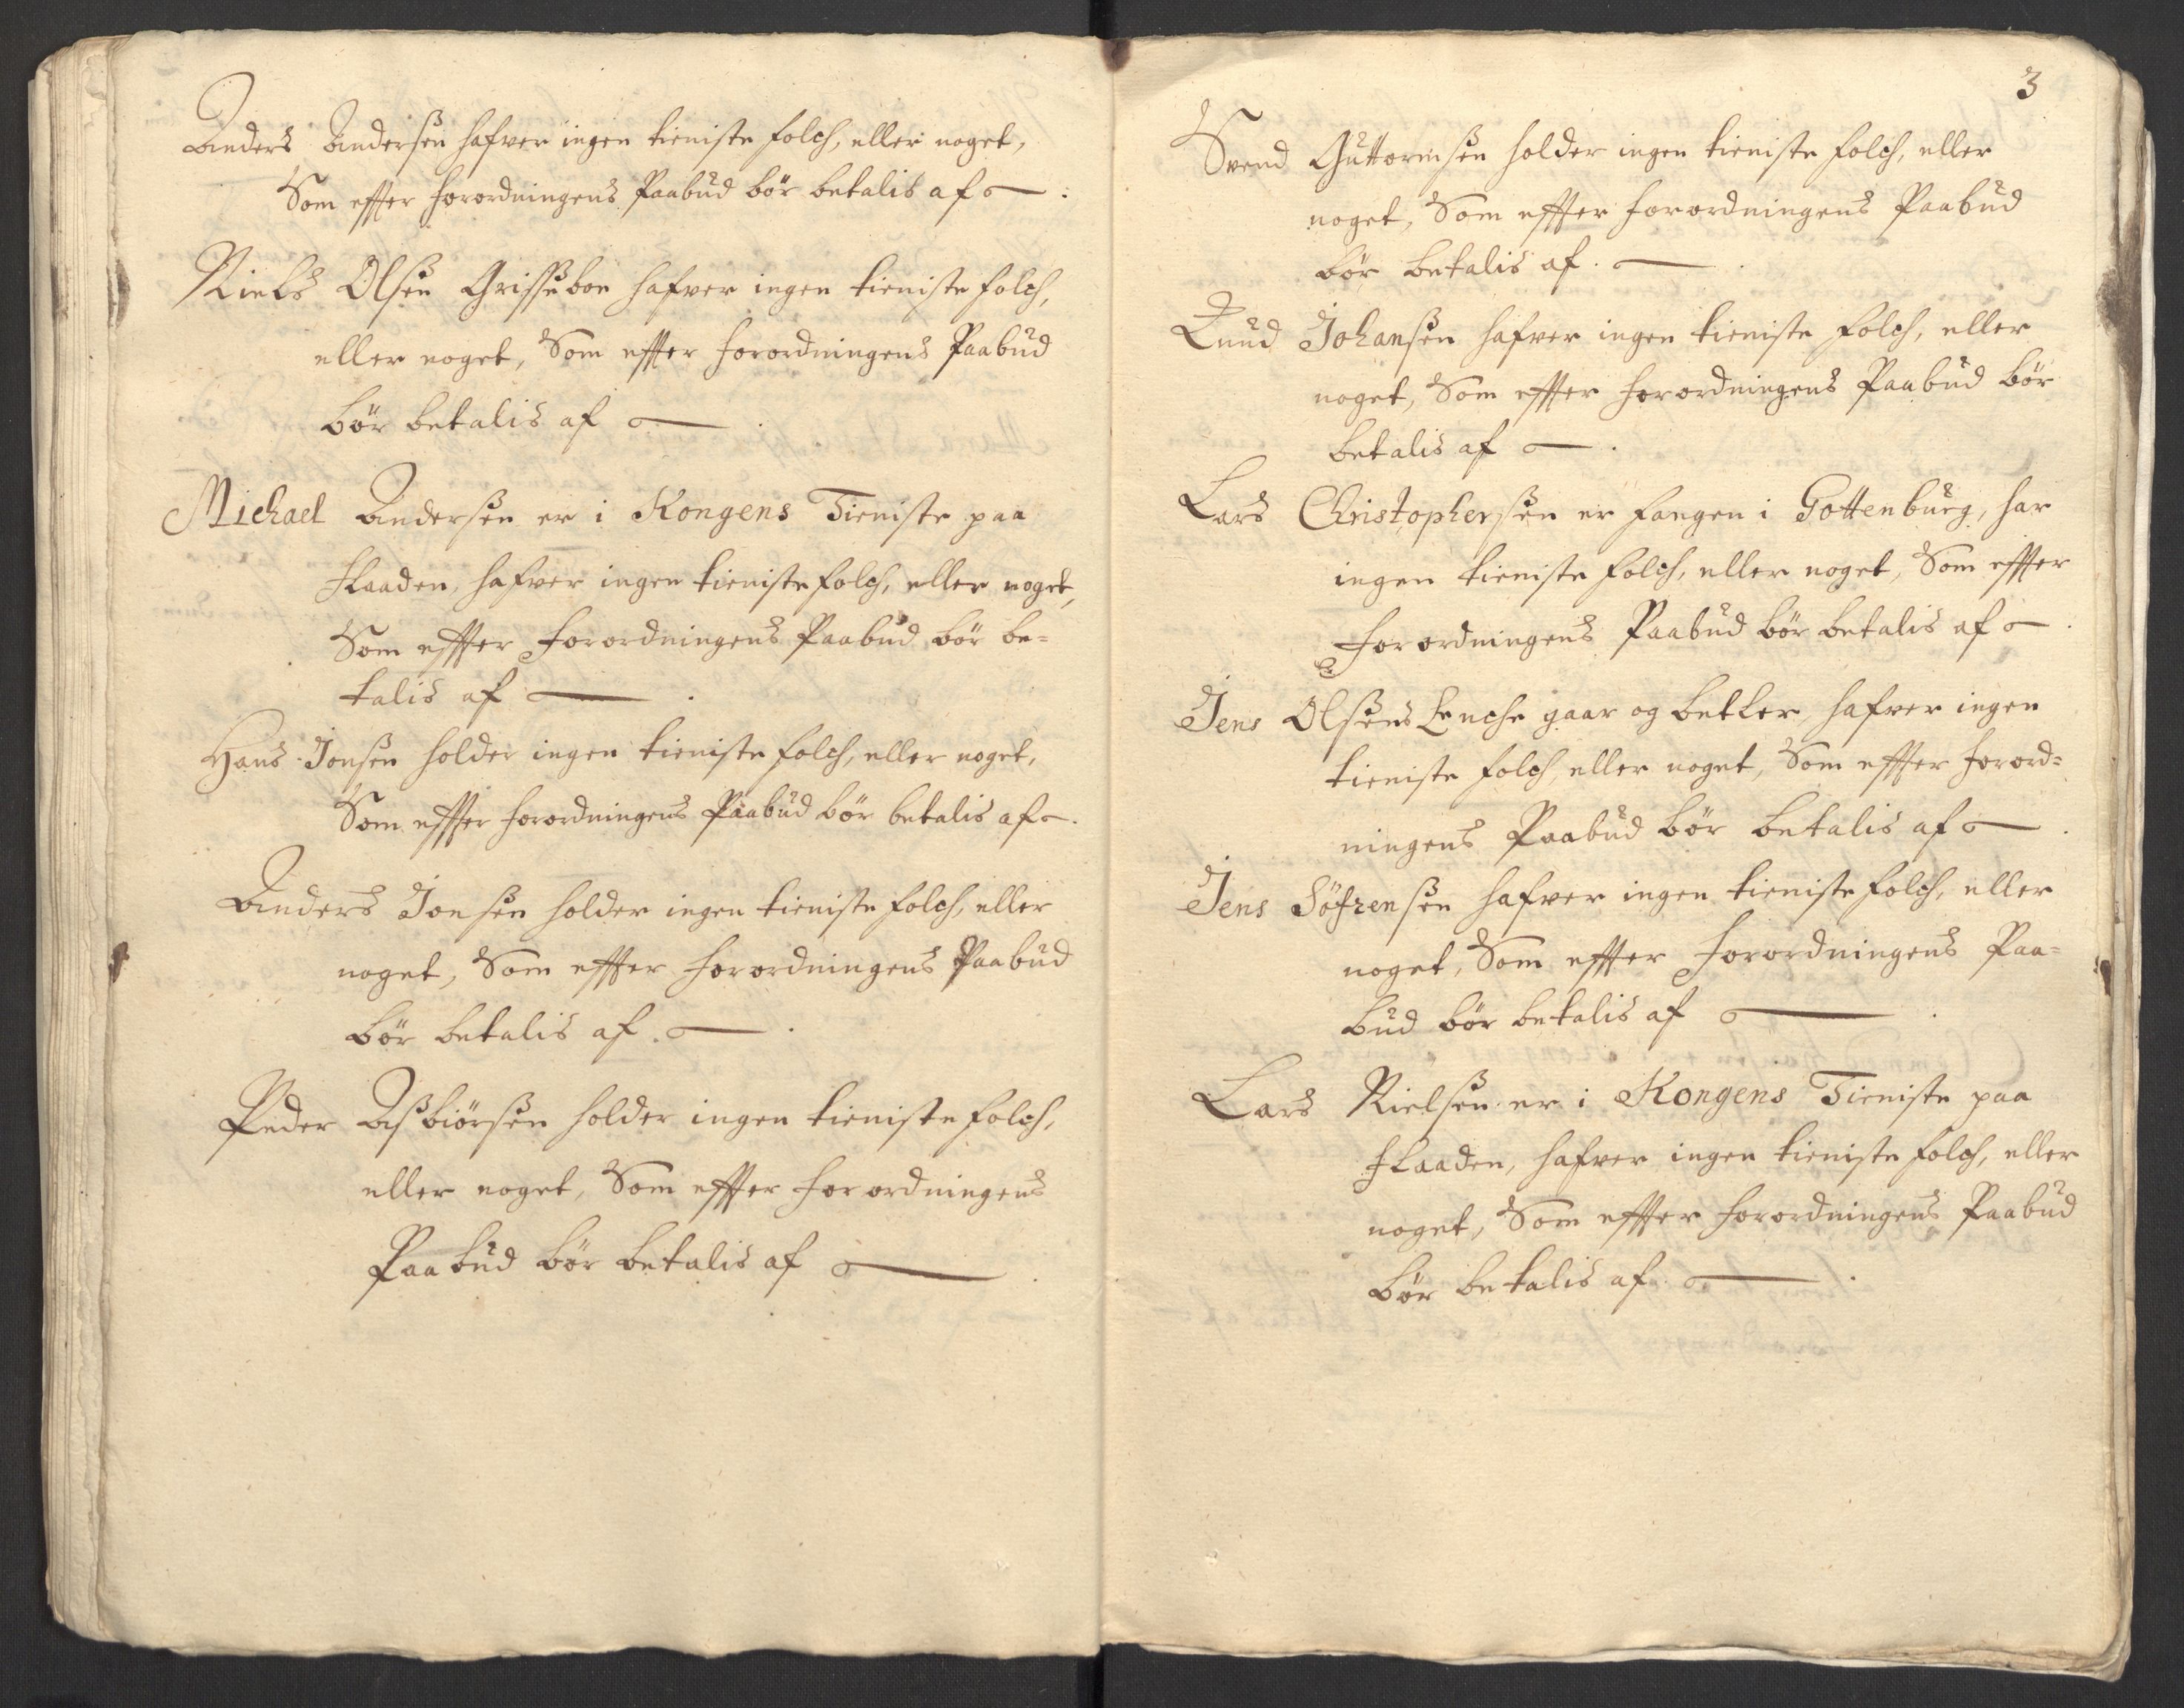 Anders Andersen hafver ingen tieniste folch, eller noget,
Som effter forordningens Paabud bør betalis af — :
Niels Olsen Grissebon hafver ingen tieniste folch,
eller noget, Som effter forordningens Paabud
bør betalis af — .
Michael Andersen er i Kongens Tieniste paa
Flaaden, hafver ingen tieniste folch, eller noget,
Som effter forordningens Paabud bør be=
talis af — .
Hans Jonsen holder ingen tieniste folch, eller noget,
Som effter forordningens Paabud bør betalis af — .
Anders Jonsen holder ingen tieniste folch, eller
noget, Som effter forordningens Paabud
bør betalis af — .
Peder Asbiørsen holder ingen tieniste folch,
eller noget, Som effter forordningens
Paabud bør betalis af — .
3
Svend Guttormsen holder ingen tieniste folch, eller
noget, Som effter forordningens Paabud
bør betalis af — .
Knud Johansen hafver ingen tieniste folch, eller
noget, Som effter forordningens Paabud bør
betalis af — .
Lars Christophersen er fangen i Gottenburg, har
ingen tieniste folch, eller noget, Som effter
forordningens Paabud bør betalis af — .
Jens Olsens Enche gaar og betler, hafver ingen
tieniste folch, eller noget, Som effter forord=
ningens Paabud bør betalis af — .
Jens Söfrensen hafver ingen tieniste folch, eller
noget, Som effter forordningens Paa=
bud bør betalis af — .
Lars Nielsen er i Kongens Tieniste paa
Flaaden, hafver ingen tieniste folch, eller
noget, Som effter forordningens Paabud
bør betalis af — .